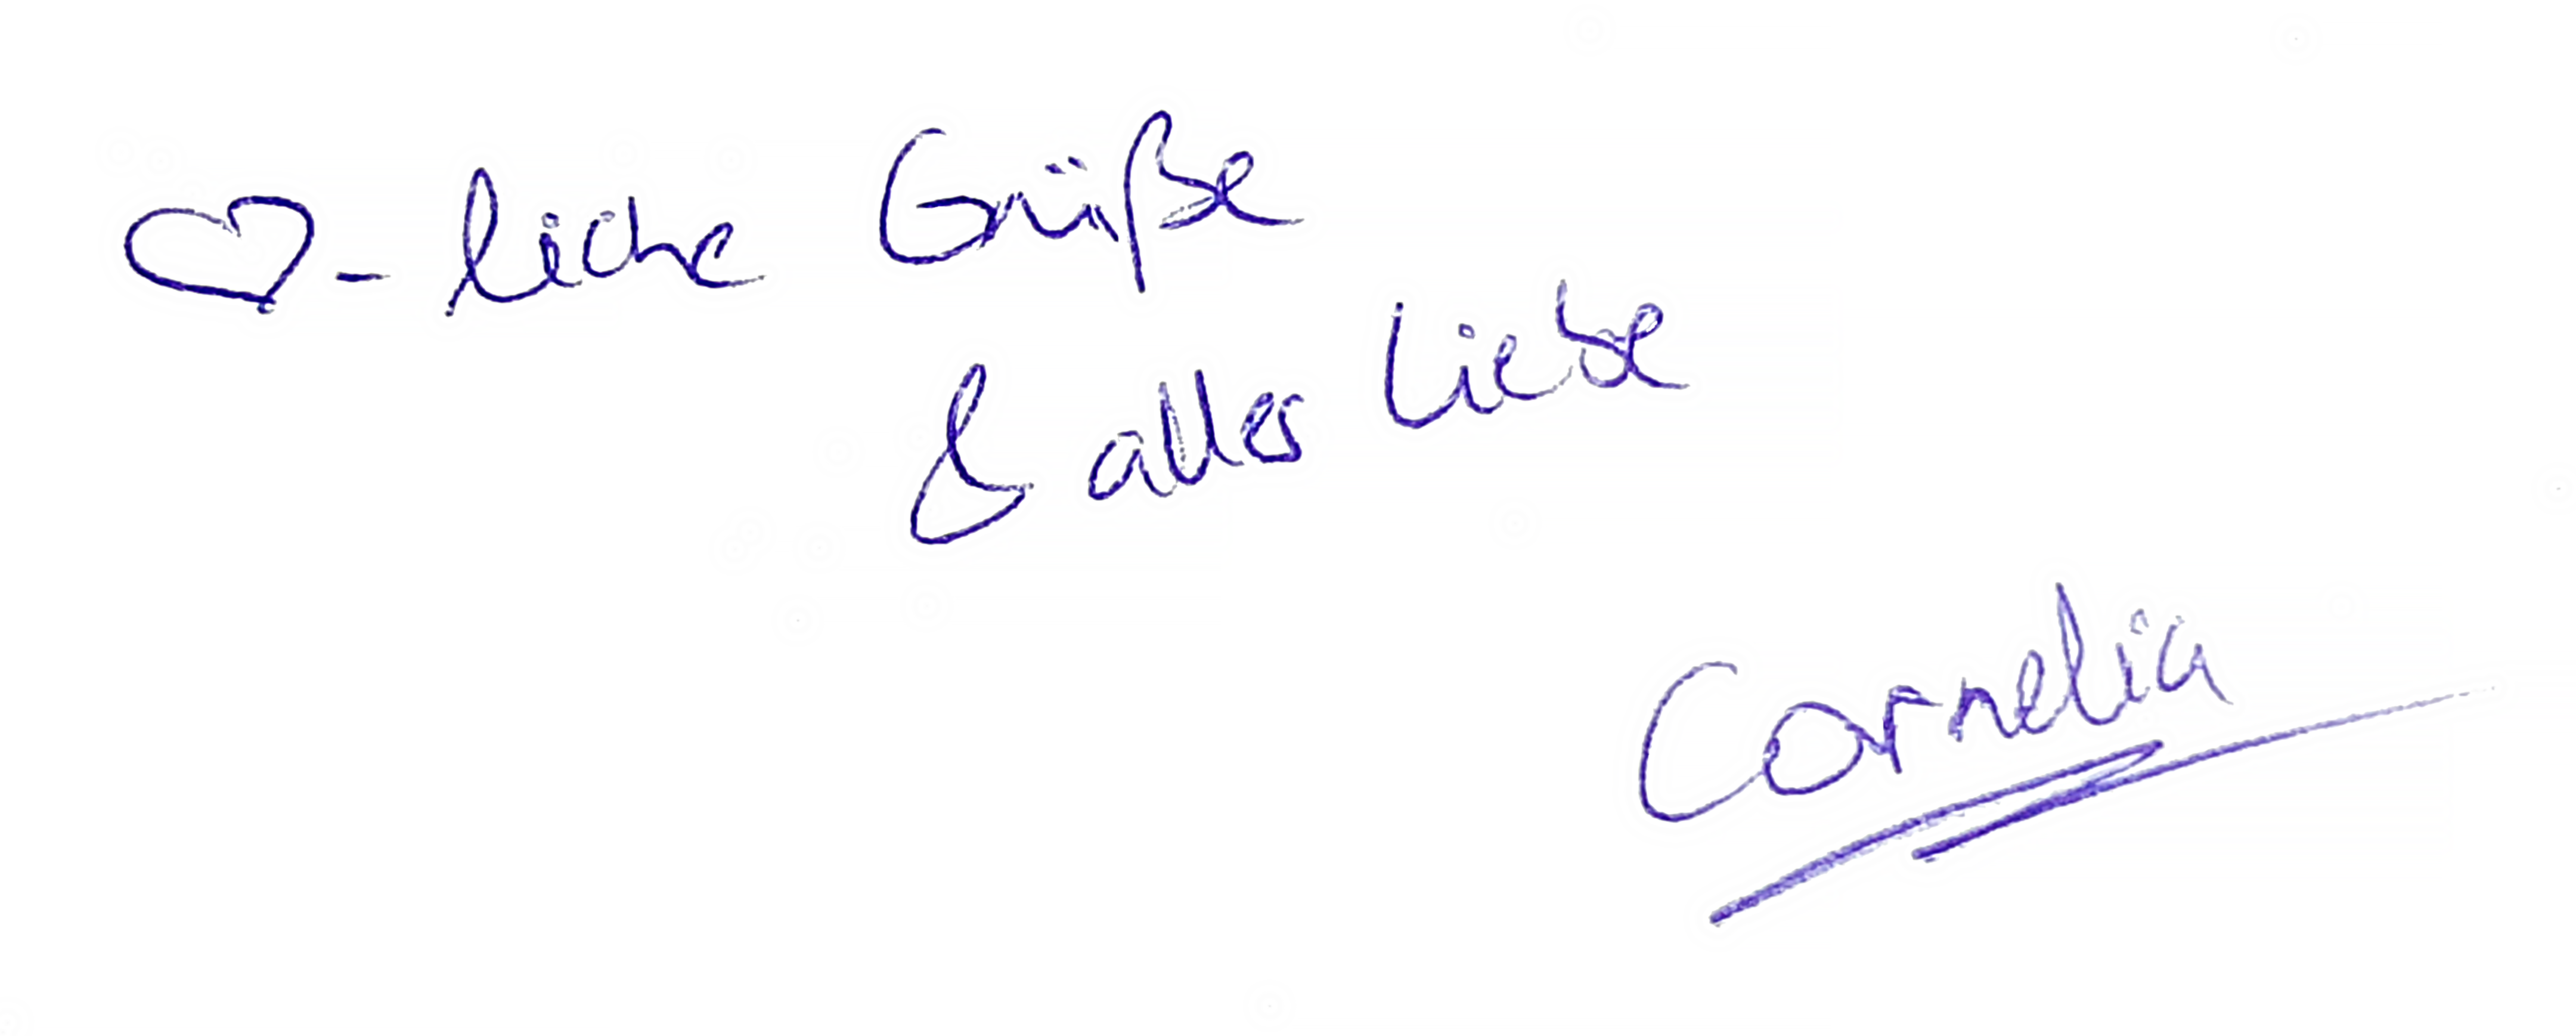 ♡-liche Grüße
& alles Liebe
Cornelia